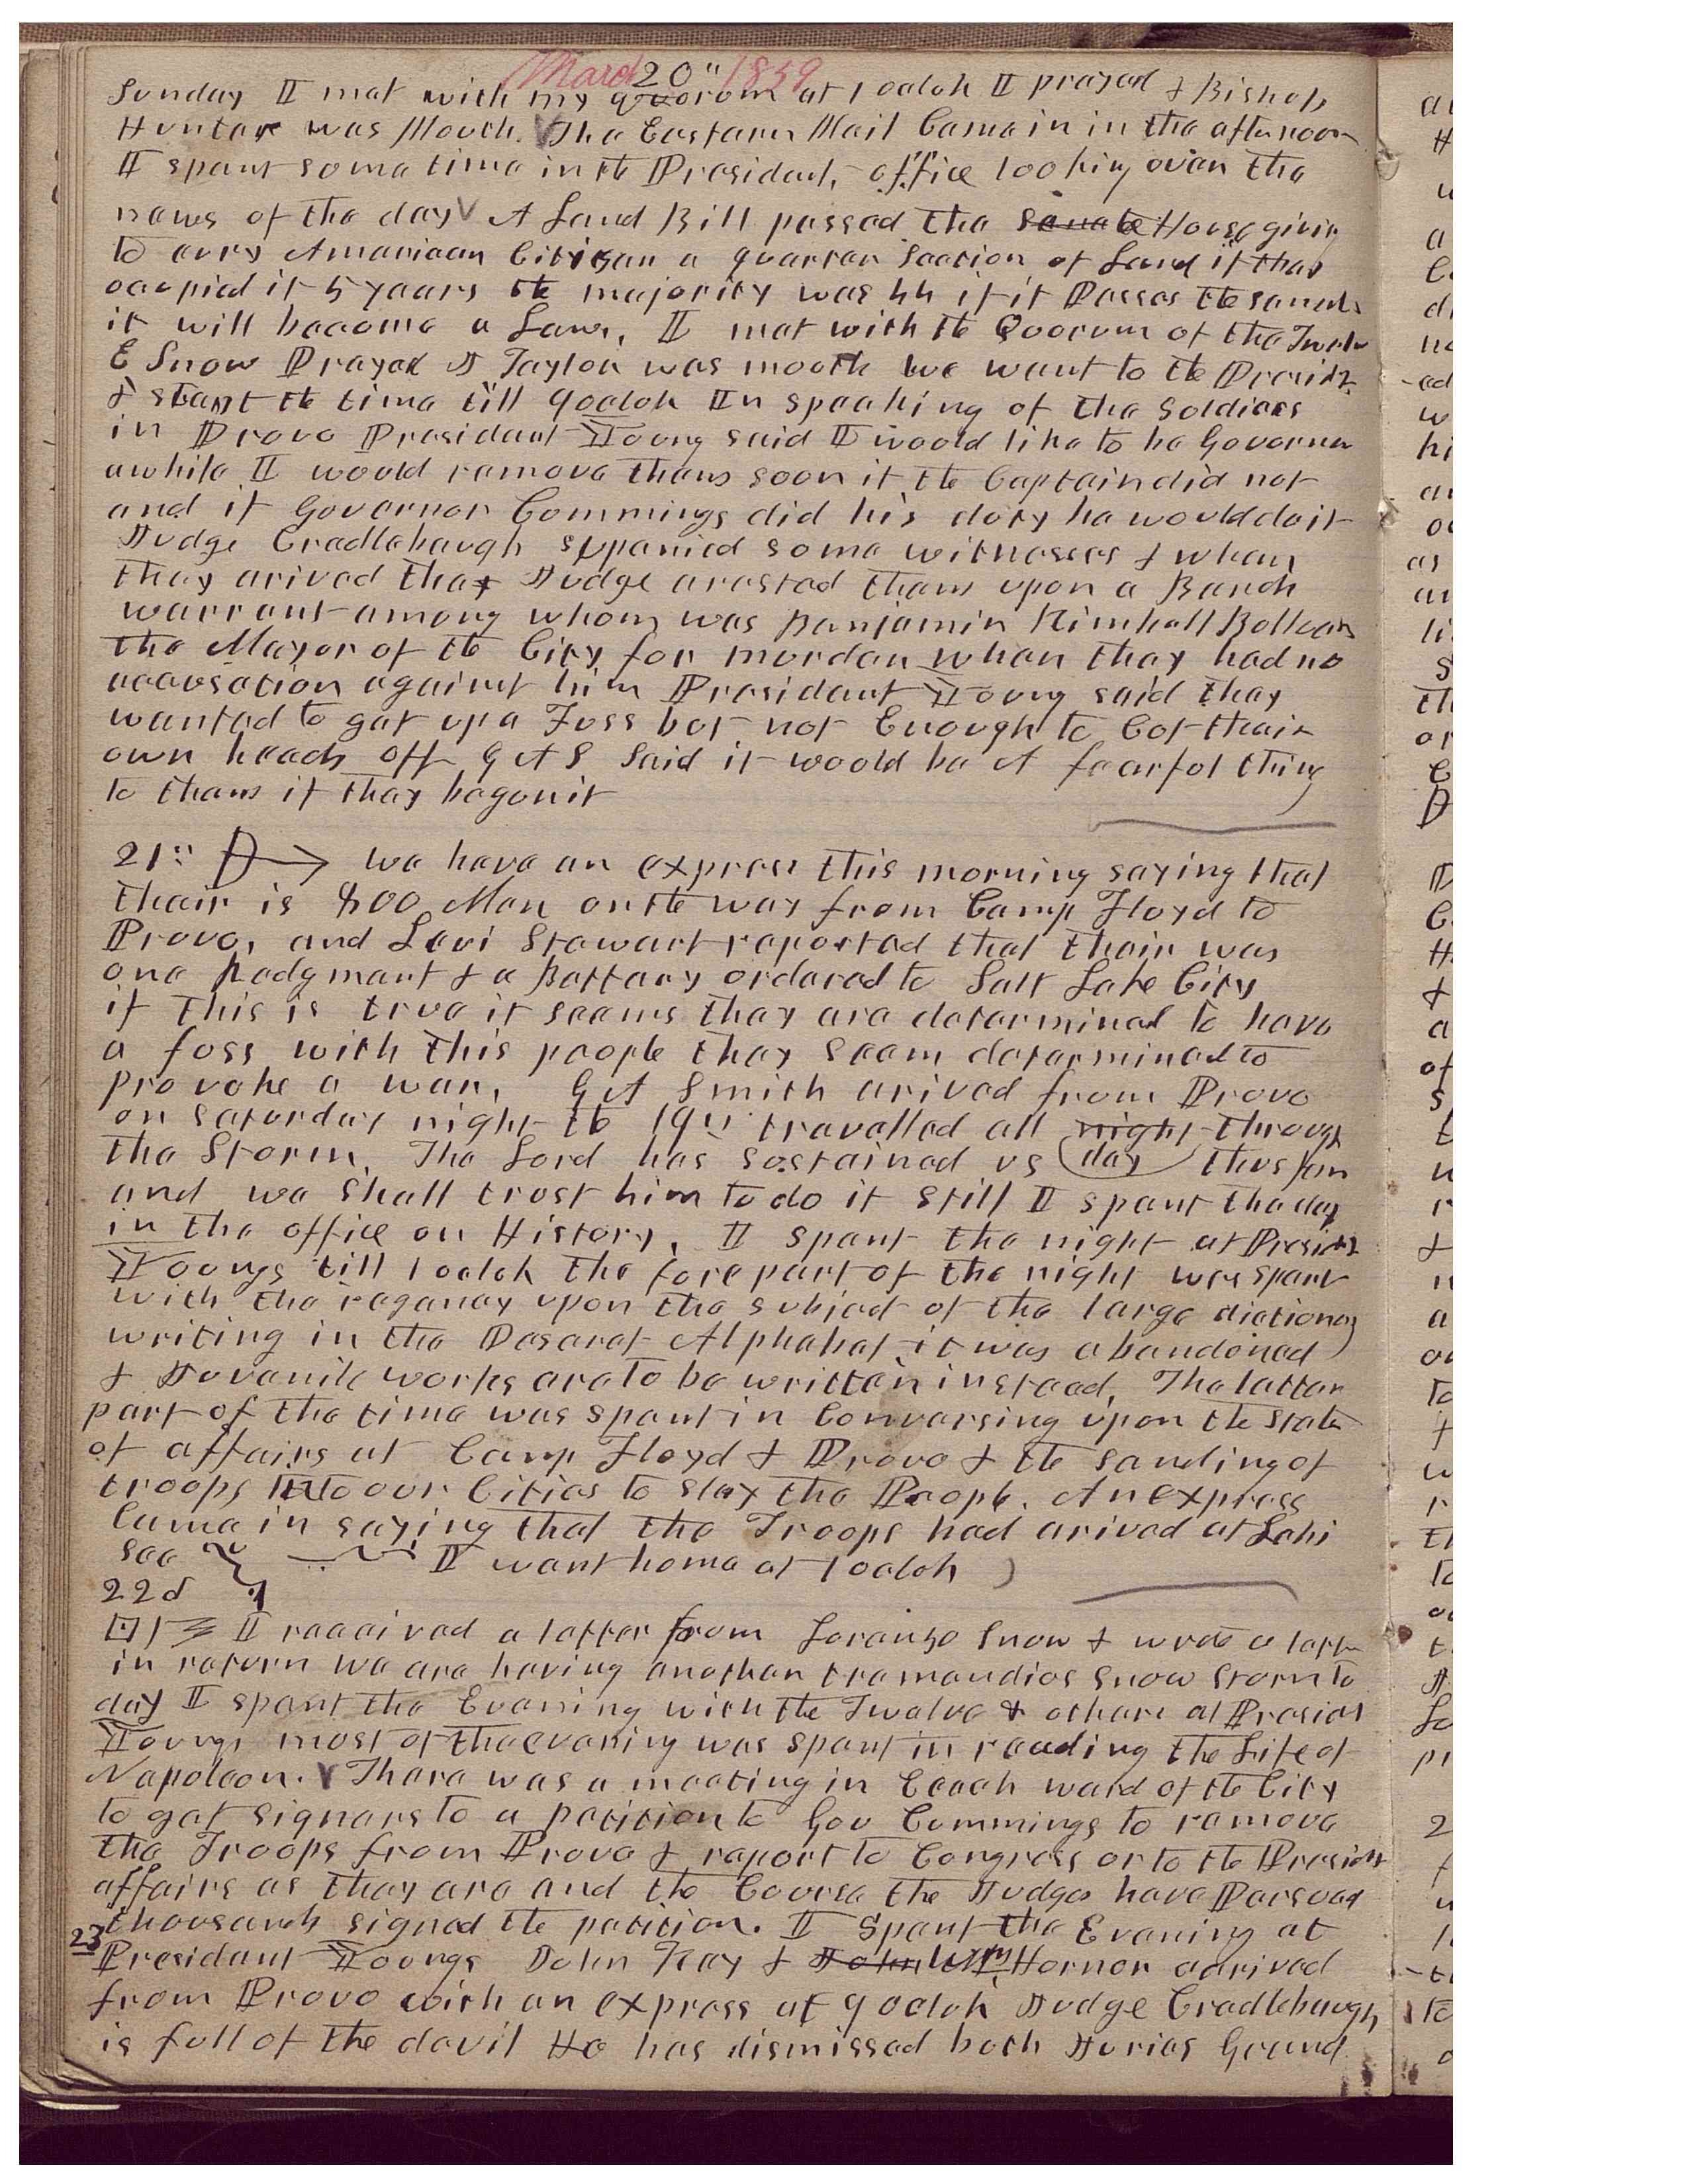 March 20" 1859
Sunday I met with my quorum at 1 oclok I prayed & Bishop
Hunter was Mouth. The Eastern Mail Came in in the afternoon
I spent some time in the President, office looking over the
news of the day A Land Bill passed the Senate House giving
to evry American Citizen a quarter Section of Land if they
occupied it 5 years the majority was 44 if it Passes the senate
it will become a Law, I met with the Quorum of the Twelve
E Snow Prayed J Taylor was mouth we went to the Presidt
& spent the time till 9 oclok In speaking of the Soldiers
in Provo President Young said I would like to be Governor
awhile I would remove them soon if the Captain did not
and if Governor Cummings did his duty he would do it
Judge Cradlebaugh suppenied some witnesses & when
they arived they Judge arested them upon a Bench
warrant among whom was Benjamin Kimball Bullock
the Mayor of the City for murder when they had no
accusation against him President Young said they
wanted to get up a Fuss but not Enough to Cut their
own heads off G A S Said it would be A fearful thing
to them if they begun it
21" we have an express this morning saying that
their is 800 Men on the way from Camp Floyd to
Provo, and Levi Stewart reported that their was
one Redgment & a Battery ordered to Salt Lake City
if this is true it seems they are determined to have
a fuss with this people they seem determined to
provoke a war, G A Smith arived from Provo
on saturday night the 19" travelled all night through
the Storm. The Lord has sustained us (day) thus far
and we shall trust him to do it still I spent the day
in the office on History, I spent the night at Presidt
Youngs till 1 oclok the fore part of the night was spent
with the regency upon the subject of the large dictionary
writing in the Deseret Alphabet it was abandoned
& Juvenile works are to be written instead, The latter
part of the time was spent in Conversing upon the state
of affairs at Camp Floyd & Provo & the sending of
troops into our Cities to slay the People. An express
Came in saying that the Troops had arived at Lehi
see I went home at 1 oclok
22d
I received a letter from Lorenzo Snow & wrote a letter
in return we are having another tremendios snow storm to
day I spent the Evening with the Twelve & others at Presidt
Youngs most of the evening was spent in reading the Life of
Napoleon. There was a meeting in Each ward of the City
to get signers to a petition to Gov Cummings to remove
the Troops from Provo & report to Congress or to the President
affairs as they are and the Course the Judges have Persued
thousands signed the petition. I Spent the Evening at
23 President Youngs John Kay & John Wm Hornor aarived
from Provo with an express at 9 oclok Judge Cradlebaugh
is full of the devil He has dismissed both Juries Grand